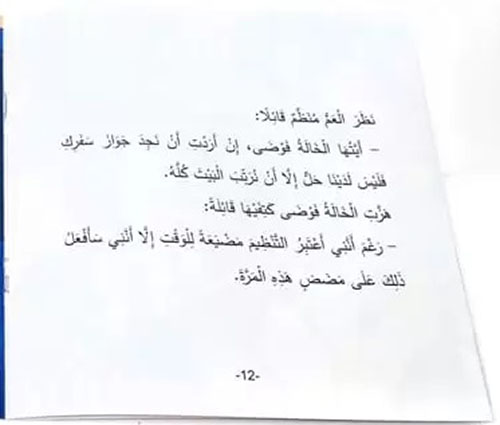 نَظَرَ الْعَمُّ مُنَظَّمٌ قَائِلًا:
– أَيَّتُهَا الْخَالَةُ فَوْضَى، إِنْ أَرَدْتِ أَنْ نَجِدَ جَوَازَ سَفَرِكِ
فَلَيْسَ لَدَيْنَا حَلٌّ إِلَّا أَنْ نُرَتِّبَ الْبَيْتَ كُلَّهُ.
هَزَّتِ الْخَالَةُ فَوْضَى كَتِفَيْهَا قَائِلَةً:
– رَغْمَ أَنَّنِي أَعْتَبِرُ التَّنْظِيمَ مَضْيَعَةً لِلْوَقْتِ إِلَّا أَنَّنِي سَأَفْعَلُ
ذَلِكَ عَلَى مَضَضٍ هَذِهِ الْمَرَّةَ.
-12-